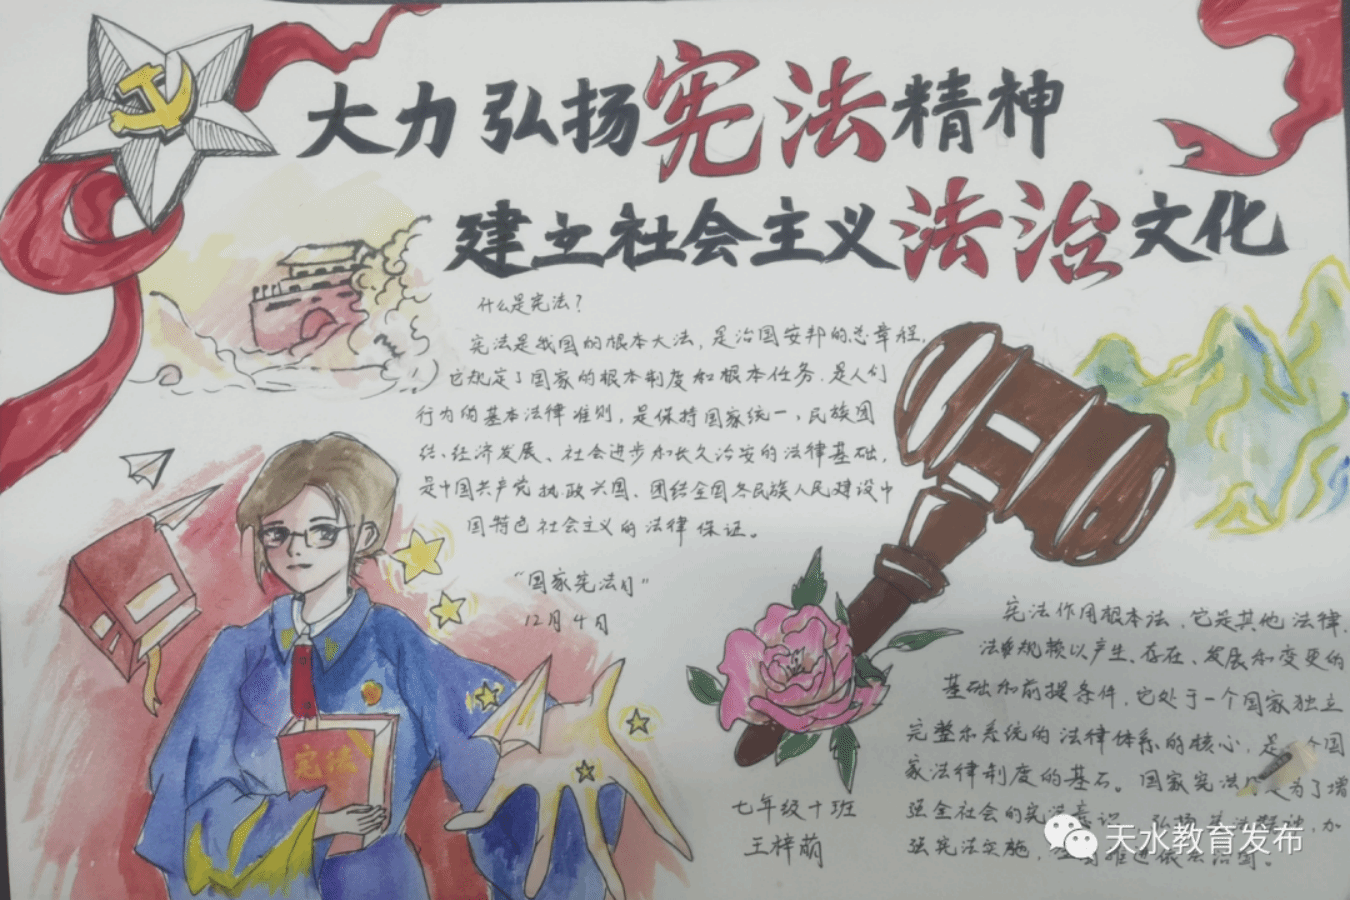 大力弘扬宪法精神
建立社会主义法治文化
什么是宪法？
宪法是我国的根本大法，是治国安邦的总章程，
它规定了国家的根本制度和根本任务，是人们
行为的基本法律准则，是保持国家统一、民族团
结、经济发展、社会进步和长久治安的法律基础，
是中国共产党执政兴国、团结全国各民族人民建设中
国特色社会主义的法律保证。
“国家宪法日”
12月4日
宪法
宪法作用根本法，它是其他法律、
法律规赖以产生、存在、发展和变更的
基础和前提条件，它处于一个国家独立
完整和系统的法律体系的核心，是一个国
家法律制度的基石。国家宪法日是为了增
强全社会的宪法意识，弘扬宪法精神，加
强宪法实施，全面推进依法治国。
七年级十班
王梓萌
天水教育发布